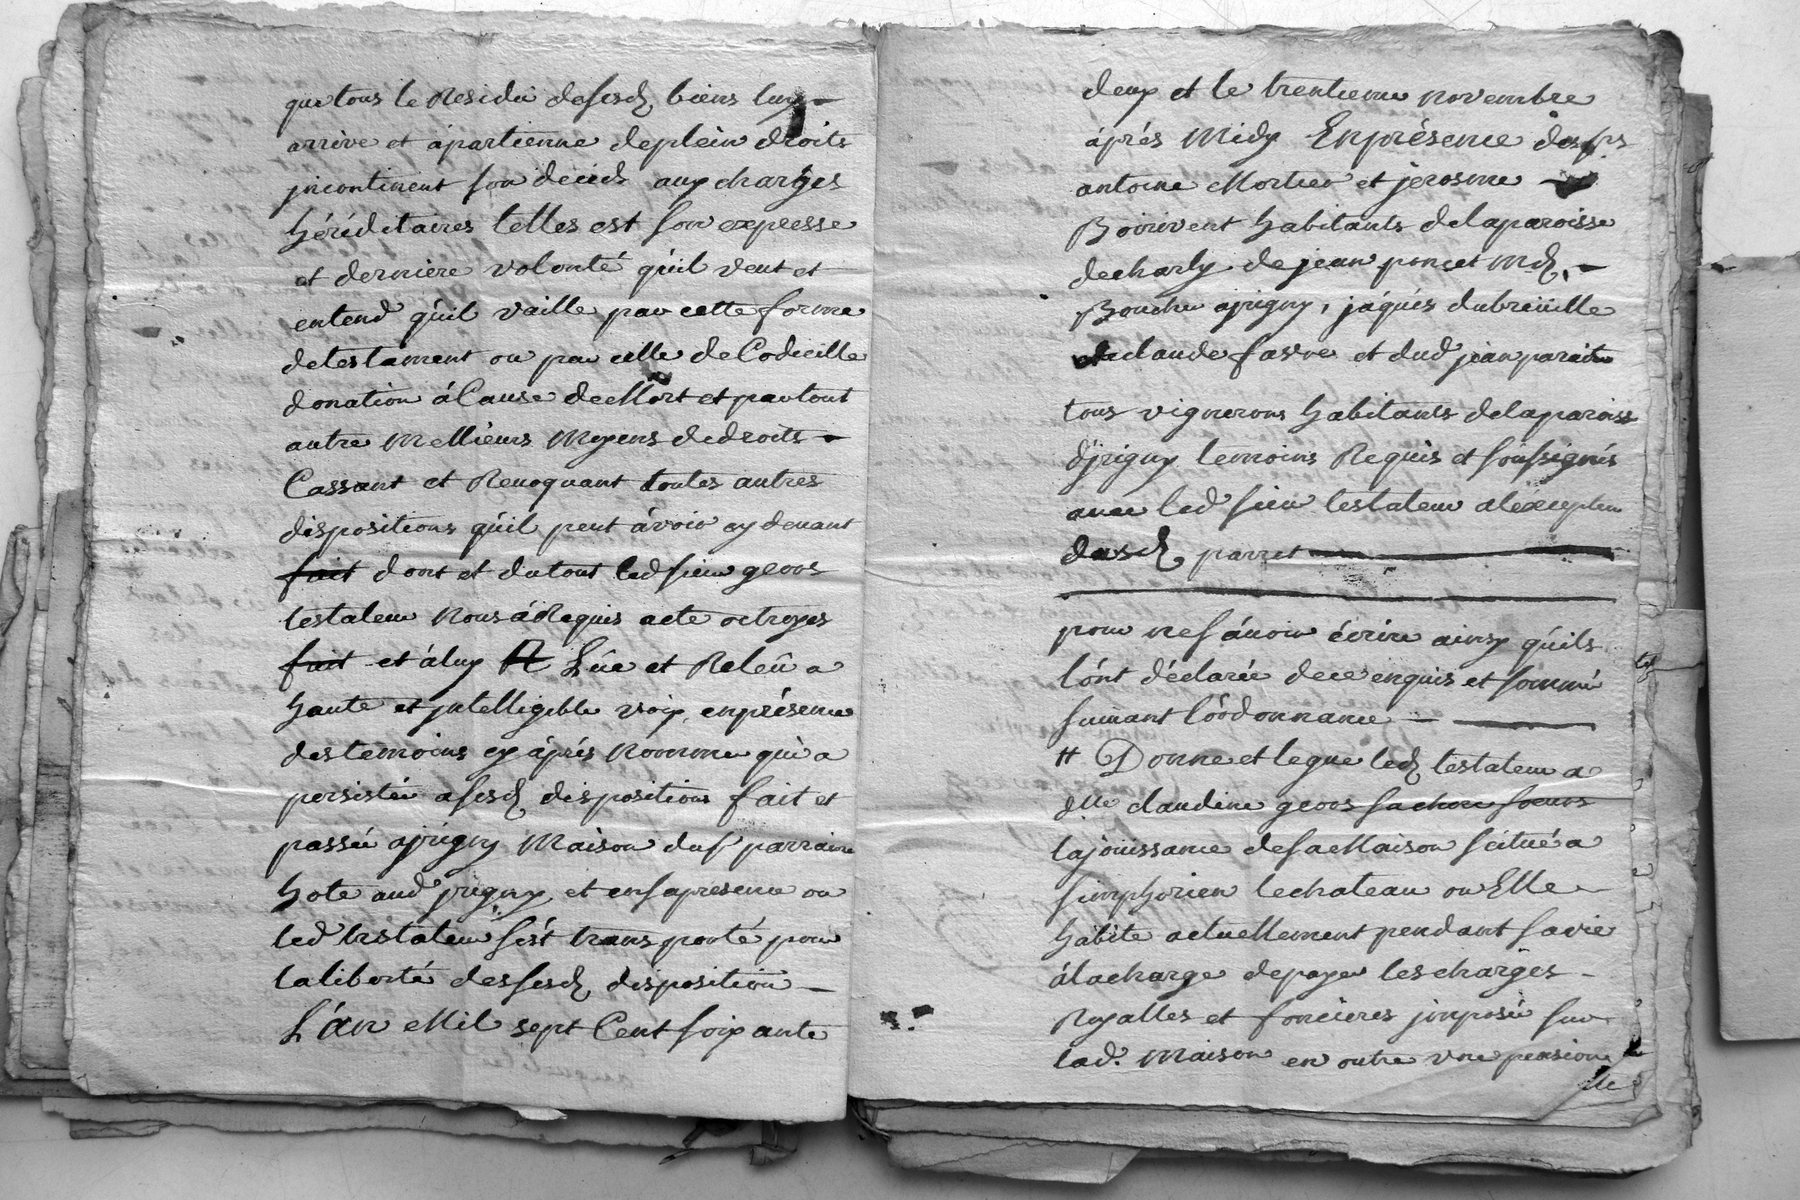 que tous le Residû desesd, biens luy
arrive et ápartienne deplein droits
jncontinent son deceds aux charges
héréditaires telles est son expresse
et derniere volonté qu'il veut et
entend qu'il vaille par cette forme
detestament ou par celle de Codicille
donation á Cause de Mort et partout
autre Mellieurs Moyens dedroits
Cassant et Revoquant toutes autres
dispositions quil peut ávoir cy devant
fait dont et dutout led sieur geoos
testateur Nous á Requis acte octroyés
fait et á luy Lûe et Releû a
haute et jntelligible voix, en présence
des temoins cy áprés nomme qui a
persistée a sesd, dispositions fait et
passée a jrigny Maison du sr parraire
hote aud jrigny et en sa presence ou
led testateur s'est transporté pour
la liberté des sesd, disposition
L'an Mil sept Cent soixante
deux et le trentieme novembre
áprés Midy Enprésence des srs
antoine Mortier et jerosme
Boirivent habitants delaparoisse
decharly de jean poncet Md,
Boucher a jrigny, jaqués dubreüille
declaude favre et dud jean
tous vignerons habitants delaparoisse
djrigny temoins Requis et soussignés
avec led sieur testateur aléxception
desd, parret
pour ne sávoir écrire ainsy quils
lónt déclarée dece enquis et sommé
suivant lórdonnance
# Donne et legue led, testateur a
dlle claudine geoos sa chere soeur
la joüissance desa Maison scitué a
simphorien le chateau ou Elle
habite actuellement pendant savie
álacharge depayer les charges
Royalles et foncieres jmposée sur
lad. Maison en outre une pension